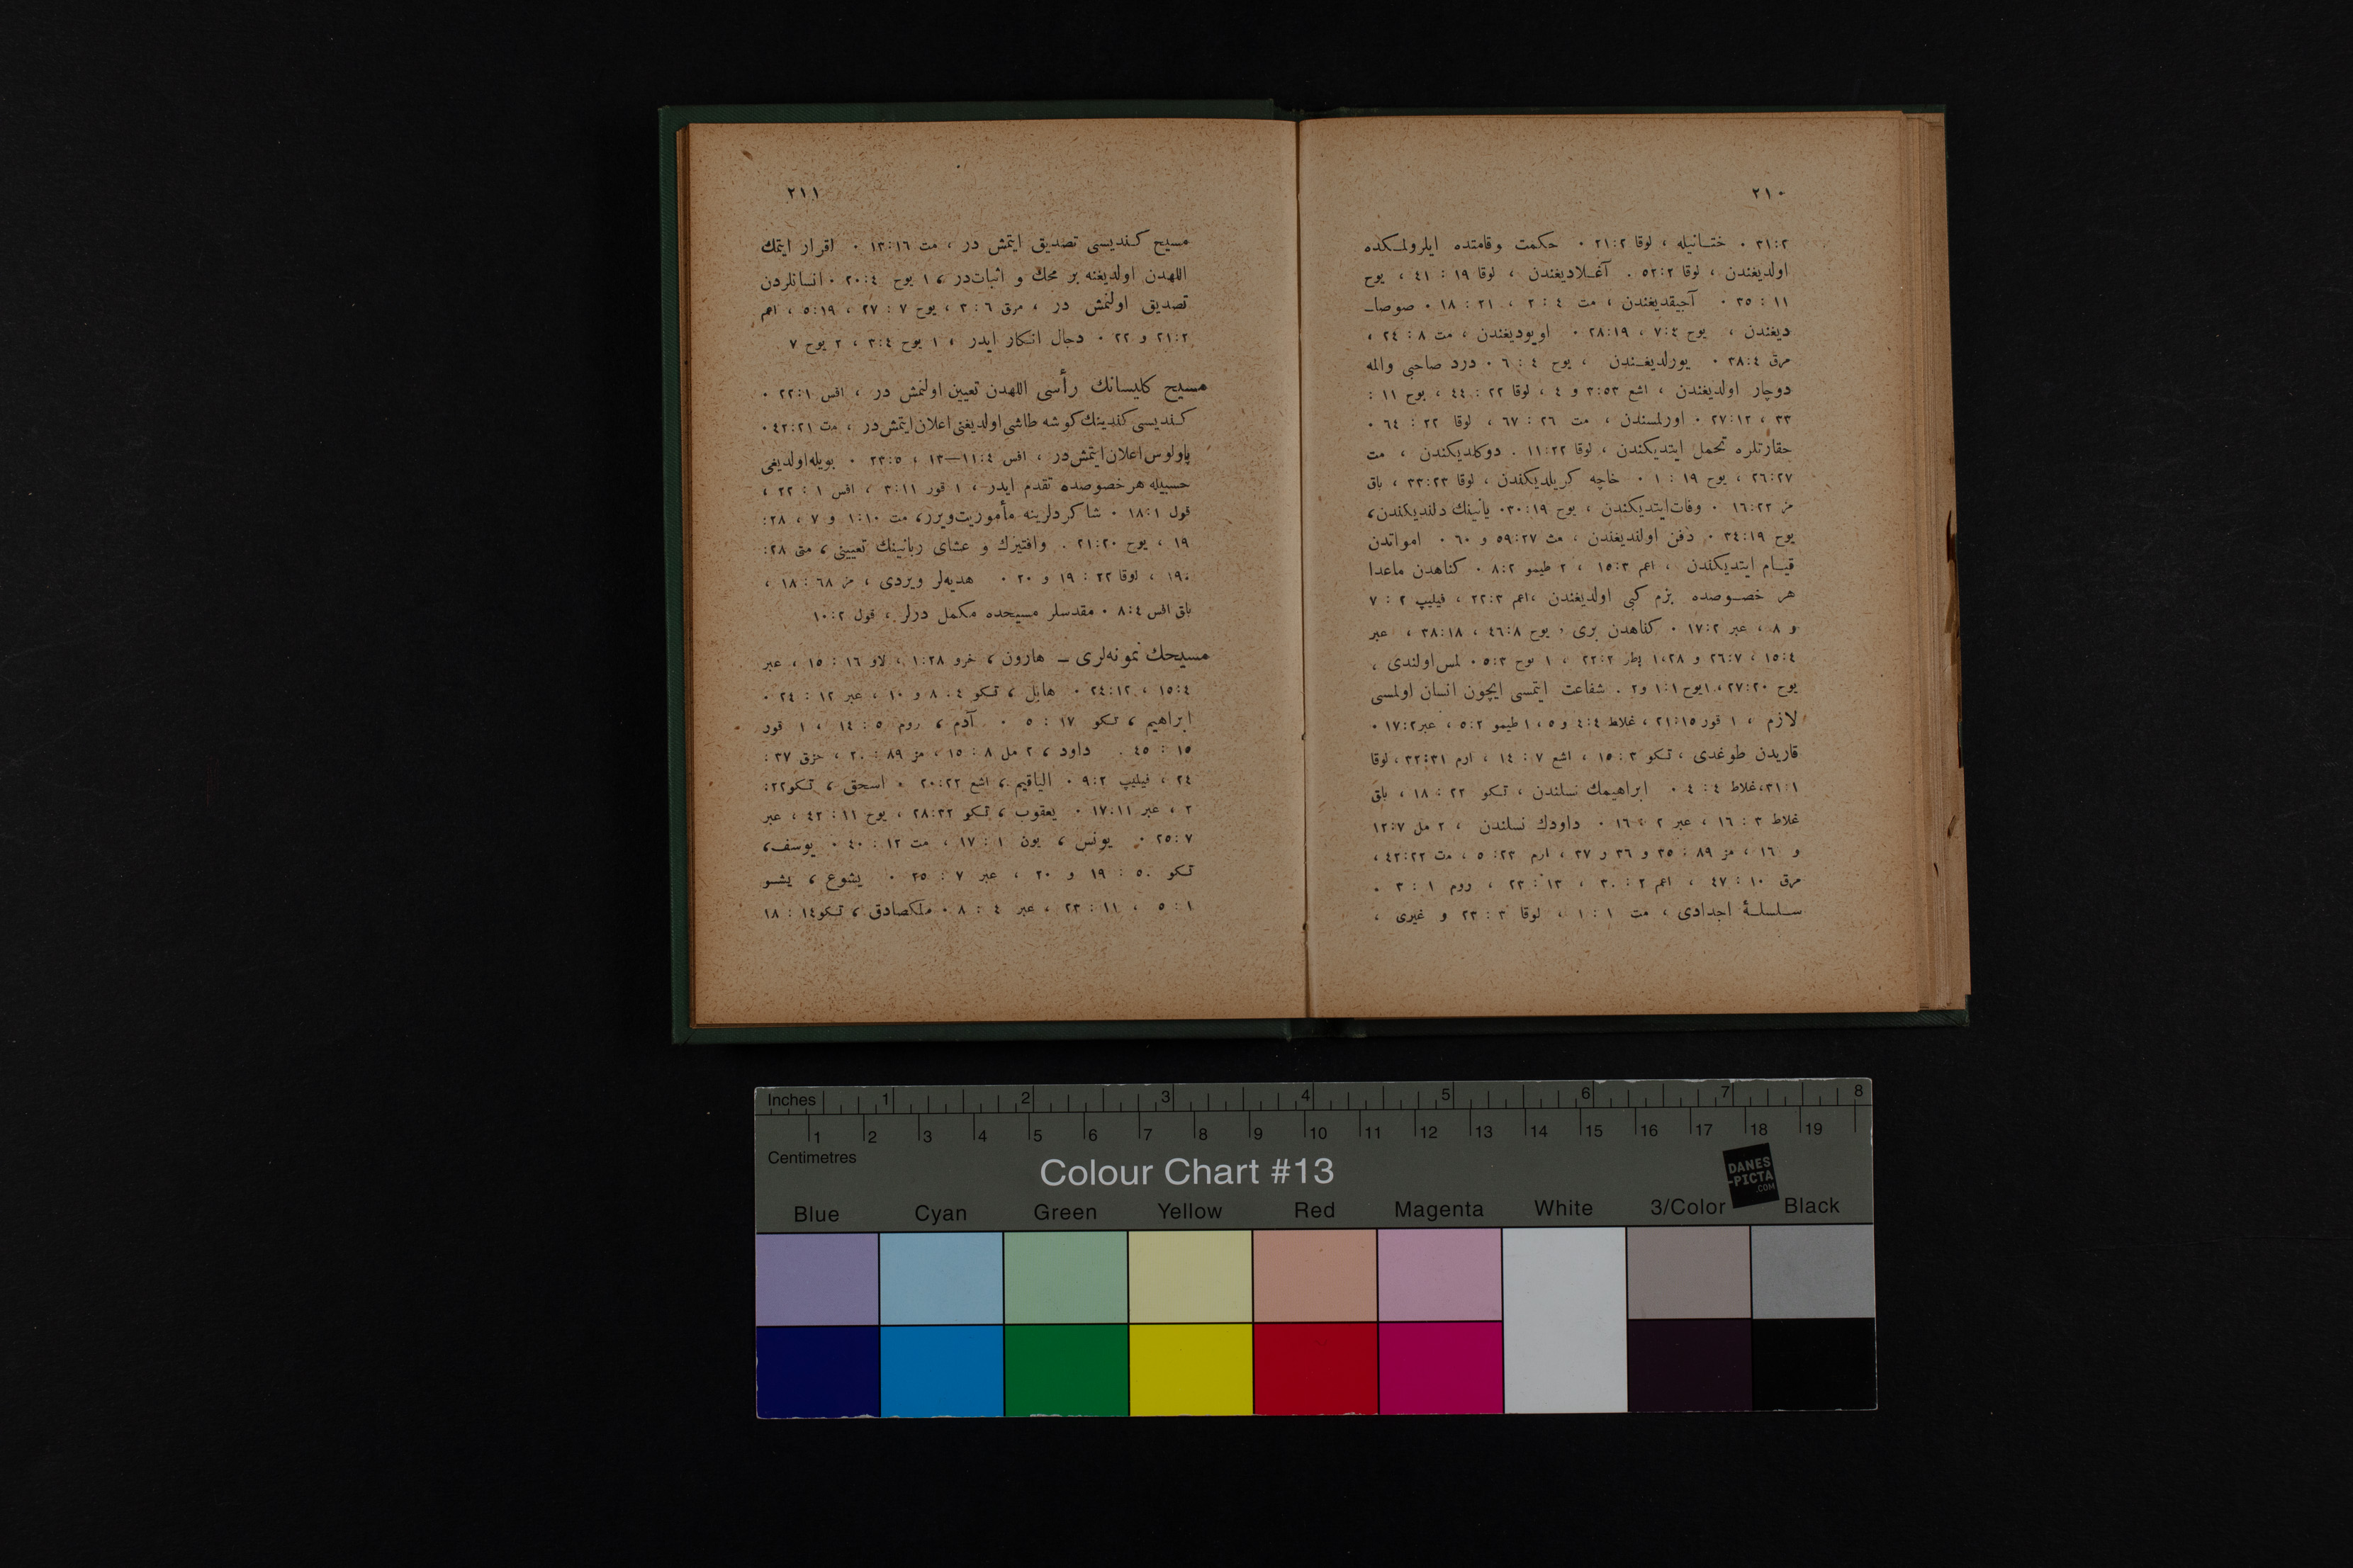 ٢١٠
٣١:٢ ٠ ختانيله ، لوقا ٢١:٢ ٠ حكمت وقامتده ايلرولمكده
اولديغندن ، لوقا ٥٢:٢ ٠ آغلاديغندن ، لوقا ١٩ : ٤١ ، يوح
١١ : ٣٥ ٠ آجيقديغندن ، مت ٤ : ٢ ، ٢١ : ١٨ ٠ صوصا_
ديغندن ، يوح ٧:٤ ، ٢٨:١٩ ٠ اويوديغندن ، مت ٨ : ٢٤ ،
مرق ٣٨:٤ ٠ يورلديغندن ، يوح ٤ : ٦ ٠ درد صاحبى والمه
دوچار اولديغندن ، اشع ٣:٥٣ و ٤ ، لوقا ٢٢ : ٤٤ ، يوح ١١ :
٣٣ ، ٢٧:١٢ ٠ اورلمسندن ، مت ٢٦ : ٦٧ ، لوقا ٢٢ : ٦٤ ٠
حقارتلره تحمل ايتديكندن ، لوقا ١١:٢٣ ٠ دوكلديكندن ، مت
٢٦:٢٧ ، يوح ١٩ : ١ ٠ خاچه كريلديكندن ، لوقا ٣٣:٢٣ ، باق
مز ١٦:٢٢ ٠ وفات‌ايتديكندن ، يوح ٣٠:١٩ ٠ يانينك دلنديكندن،
يوح ٣٤:١٩ ٠ دفن اولنديغندن ، مت ٥٩:٢٧ و ٦٠ ٠ امواتدن
قيام ايتديكندن ، اعم ١٥:٣ ، ٢ طيمو ٨:٢ ٠ كناهدن ماعدا
هر خصوصده بزم كبى اولديغندن ،اعم ٢٢:٣ ، فيليپ ٢ : ٧
و ٨ ، عبر ١٧:٢ ٠ كناهدن برى ، يوح ٤٦:٨ ، ٣٨:١٨ ، عبر
١٥:٤ ، ٢٦:٧ و ٢٨، ١ پطر ٢٢:٢ ، ١ يوح ٥:٣ ٠ لمس‌اولندى ،
يوح ٢٧:٢٠ ، ١يوح ١:١ و٢ ٠ شفاعت ايتمسى ايچون انسان اولمسى
لازم ، ١ قور ٢١:١٥ ، غلاط ٤:٤ و ٥ ، ١ طيمو ٥:٢ ، عبر١٧:٢ ٠
قاريدن طوغدى ، تكو ٣ : ١٥ ، اشع ٧ : ١٤ ، ارم ٢٢:٣١ ، لوقا
٣١:١ ،غلاط ٤ : ٤ ٠ ابراهيمك نسلندن ، تكو ٢٢ : ١٨ ، باق
غلاط ٣ : ١٦ ، عبر ٢ : ١٦ ٠ داودك نسلندن ، ٢ مل ١٢:٧
و ١٦ ، مز ٨٩ : ٣٥ و ٣٦ و ٣٧ ، ارم ٢٣ : ٥ ، مت ٤٢:٢٢ ،
مرق ١٠ : ٤٧ ، اعم ٢ : ٣٠ ، ١٣ : ٢٣ ، روم ١ : ٣ ٠
سلسلهٔ اجدادى ، مت ١ : ١ ، لوقا ٣ : ٢٣ و غيرى ،
٢١١
مسيح كنديسى تصديق ايتمش در ، مت ١٣:١٦ ٠ اقرار ايتمك
اللهدن اولديغنه بر محك و اثبات‌در ، ١ يوح ٢:٤ ٠ انسانلردن
تصديق اولنمش در ، مرق ٦ : ٣ ، يوح ٧ : ٢٧ ، ٥:١٩ ، اعم
٢١:٢ و ٢٢ ٠ دجال انكار ايدر ، ١ يوح ٣:٤ ، ٢ يوح ٧
مسيح كليسانك رأسى اللهدن تعيين اولنمش در ، افس ٢٢:١ ٠
كنديسى كندينك كوشه طاشى‌اولديغنى‌اعلان‌ايتمش‌در ، مت ٤٢:٢١ ٠
پاولوس‌اعلان‌ايتمش‌در ، افس ١١:٤—١٣ ، ٢٣:٥ ٠ بويله‌اولديغى
حسبيله هر خصوصده تقدم ايدر ، ١ قور ٣:١١ ، افس ١ : ٢٢ ،
قول ١٨:١ ٠ شاكردلرينه مأموريت‌ويرر، مت ١:١٠ و ٧ ، ٢٨:
١٩ ، يوح ٢١:٢٠ ٠ وافتيزك و عشاى ربانينك تعيينى ، متى ٢٨:
١٩ ، لوقا ٢٢ : ١٩ و ٢٠ ٠ هديه‌لر ويردى ، مز ٦٨ : ١٨ ،
باق افس ٨:٤ ٠ مقدسلر مسيحده مكمل درلر ، قول ١٠:٢
مسيحك نمونه‌لرى ــ هارون ، خرو ١:٢٨ ، لاو ١٦ : ١٥ ، عبر
١٥:٤ ، ٢٤:١٢ ٠ هابل ، تكو ٤ : ٨ و ١٠ ، عبر ١٢ : ٢٤ ٠
ابراهيم ، تكو ١٧ : ٥ ٠ آدم ، روم ٥ : ١٤ ، ١ قور
١٥ : ٤٥ ٠ داود ، ٢ مل ٨ : ١٥ ، مز ٨٩ : ٢٠ ، حزق ٣٧ :
٢٤ ، فيليپ ٩:٢ ٠ الياقيم ، اشع ٢٠:٢٢ ٠ اسحق ، تكو٢٢:
٢ ، عبر ١٧:١١ ٠ يعقوب ، تكو ٢٨:٣٢ ، يوح ١١ : ٤٢ ، عبر
٢٥:٧ ٠ يونس ، يون ١ : ١٧ ، مت ١٢ : ٤٠ ٠ يوسف ،
تكو ٥٠ : ١٩ و ٢٠ ، عبر ٧ : ٢٥ ٠ يشوع ، يشو
١ : ٥ ، ١١ : ٢٣ ، عبر ٤ : ٨ ٠ ملكصادق ، تكو١٤ : ١٨
Inches 1 2 3 4 5 6 7 8
1 2 3 4 5 6 7 8 9 10 11 12 13 14 15 16 17 18 19
Centimetres
Colour Chart #13
DANES
-PICTA
.COM
Blue Cyan Green Yellow Red Magenta White 3/Color Black